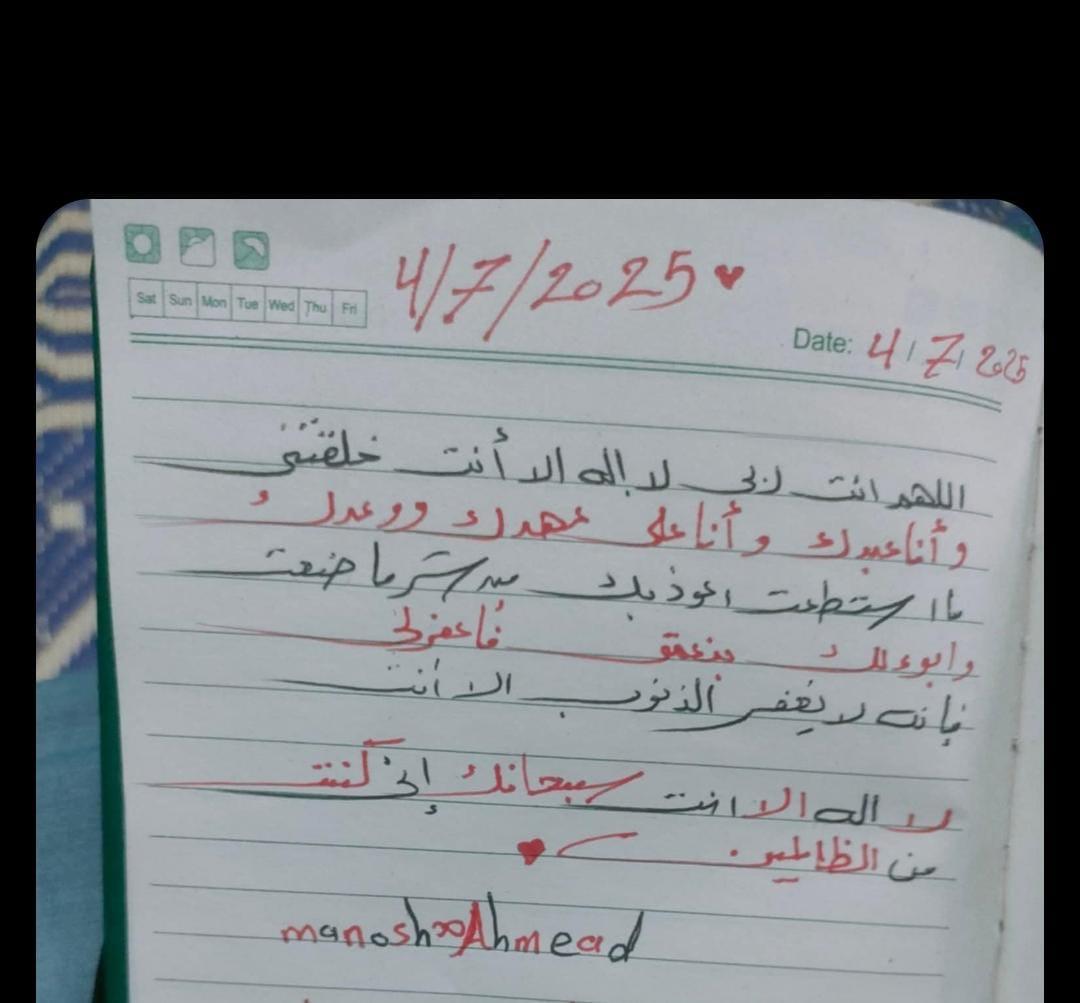 4/7/2025
Sat Sun Mon Tue Wed Thu Fri
Date: 4/7/2025
اللهم انت ربي لا إله الا أنت خلقتني
و أنا عبدك و أنا على عهدك ووعدك
ما استطعت اعوذ بك من شر ما صنعت
وابوء لك بنعمتي فاغفرلي
فإنه لا يغفر الذنوب الا أنت
لا اله الا انت سبحانك إني كنت
من الظالمين.
manosh∞Ahmead